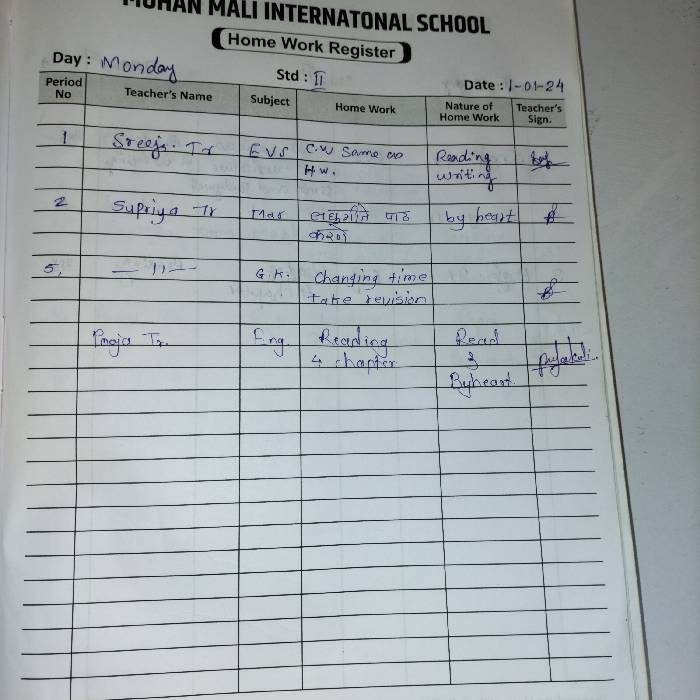 MOHAN MALI INTERNATONAL SCHOOL
Home Work Register
Day : Monday
Std : II
Date : 1-01-24
Period No Teacher's Name Subject Home Work Nature of Home Work Teacher's Sign.
1 Sreeja. Tr EVS C.W same as Reading
H.W. writing
2 Supriya Tr Mar पाठ by heart
करणे
5. — 11 — G.K. Changing time
take revision
Pooja Tr. Eng. Reading Read
4 chapter &
Byheart